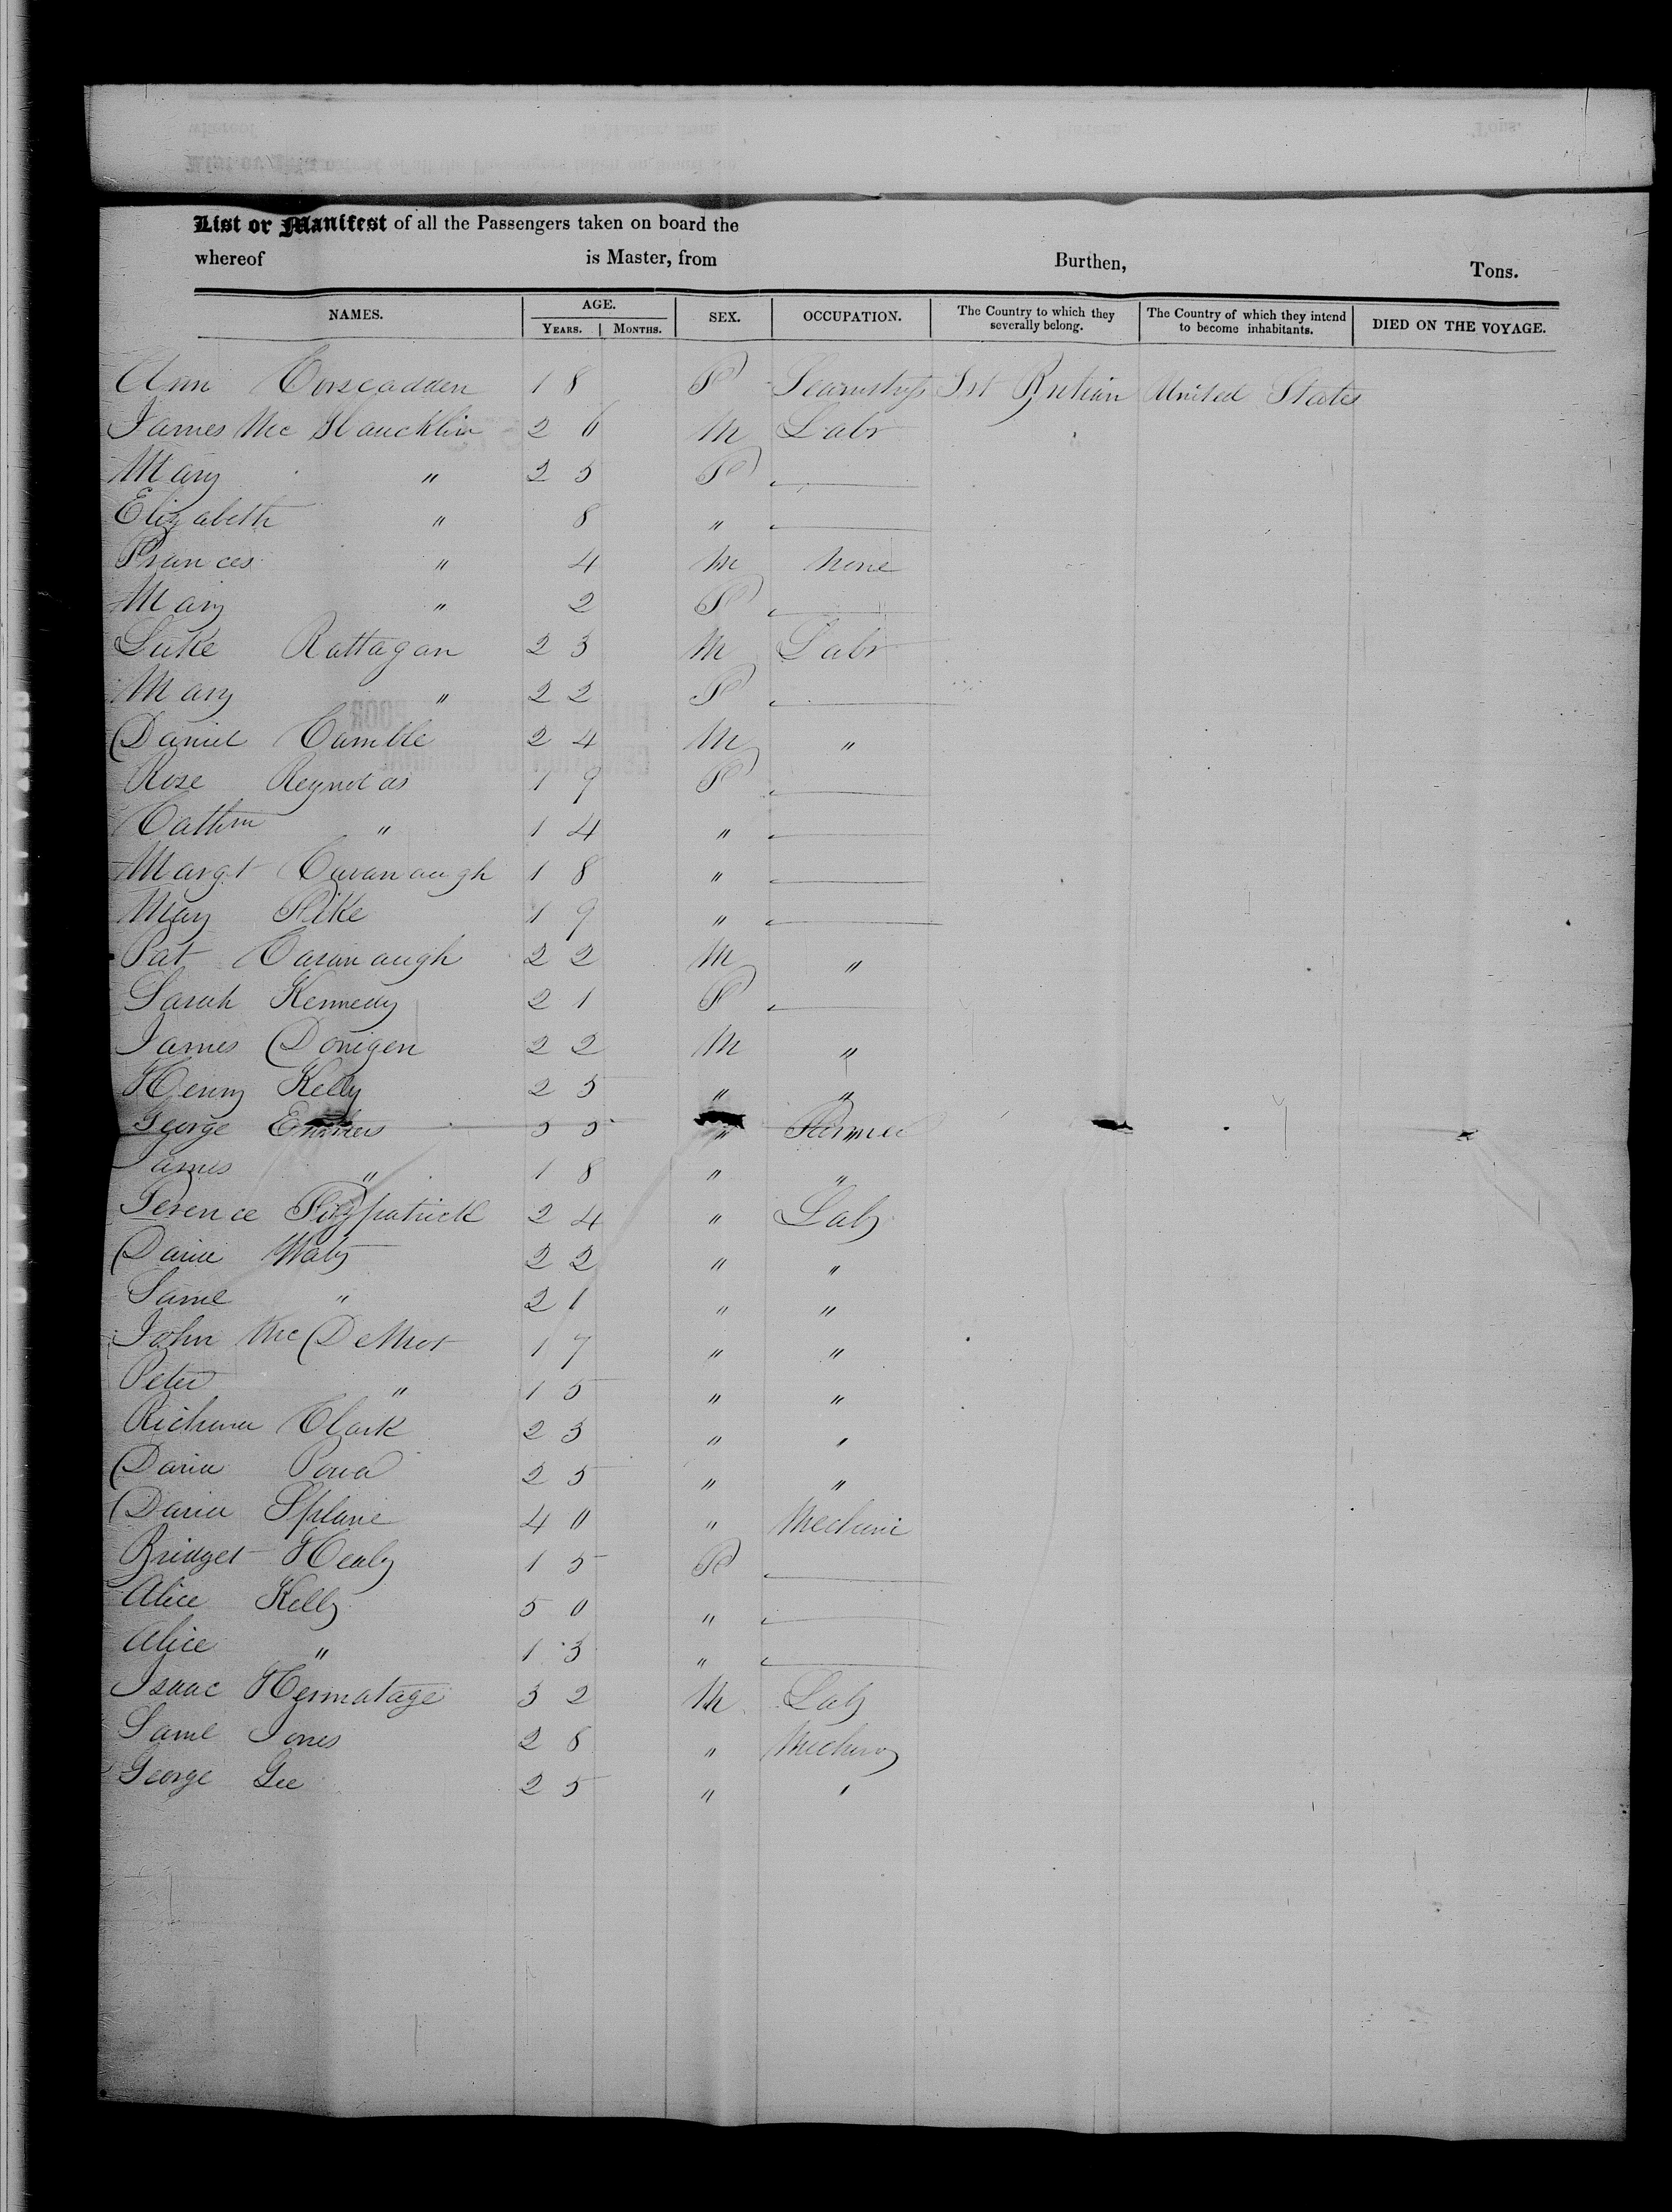 List or Manifest of all the Passengers taken on board the
whereof is Master, from Burthen, Tons.
NAMES. AGE. YEARS. MONTHS. SEX. OCCUPATION. The Country to which they severally belong. The Country of which they intend to become inhabitants. DIED ON THE VOYAGE.
Ann Corscadden 18 F Seamstress Grt Britian United States
James McGlaucklin 26 M Labr
Mary " 25 F
Elizabeth " 8 "
Frances " 4 M None
Mary " 2 F
Luke Rattagan 23 M Labr
Mary " 22 F
Daniel Camble 24 M "
Rose Reynolds 19 F
Cathrn " 14 "
Margt Cavanaugh 18 "
Mary Pike 19 "
Pat Cavanaugh 22 M "
Sarah Kennedy 21 F
James Donigen 22 M "
Henry Kelly 25 " "
George 55 " Farmer
James " 18 " "
Terence Fitzpatrick 24 " Lab
David 22 " "
Saml " 21 " "
John McDemot 17 " "
Peter " 15 " "
Richard Clark 23 " "
David Power 25 " "
David Splane 40 " Mechanic
Bridget Healy 15 F
Alice Kelly 50 "
Alice " 13 "
Isaac Hermatage 32 M Lab
Saml Jones 28 "
George Gee 25 " "